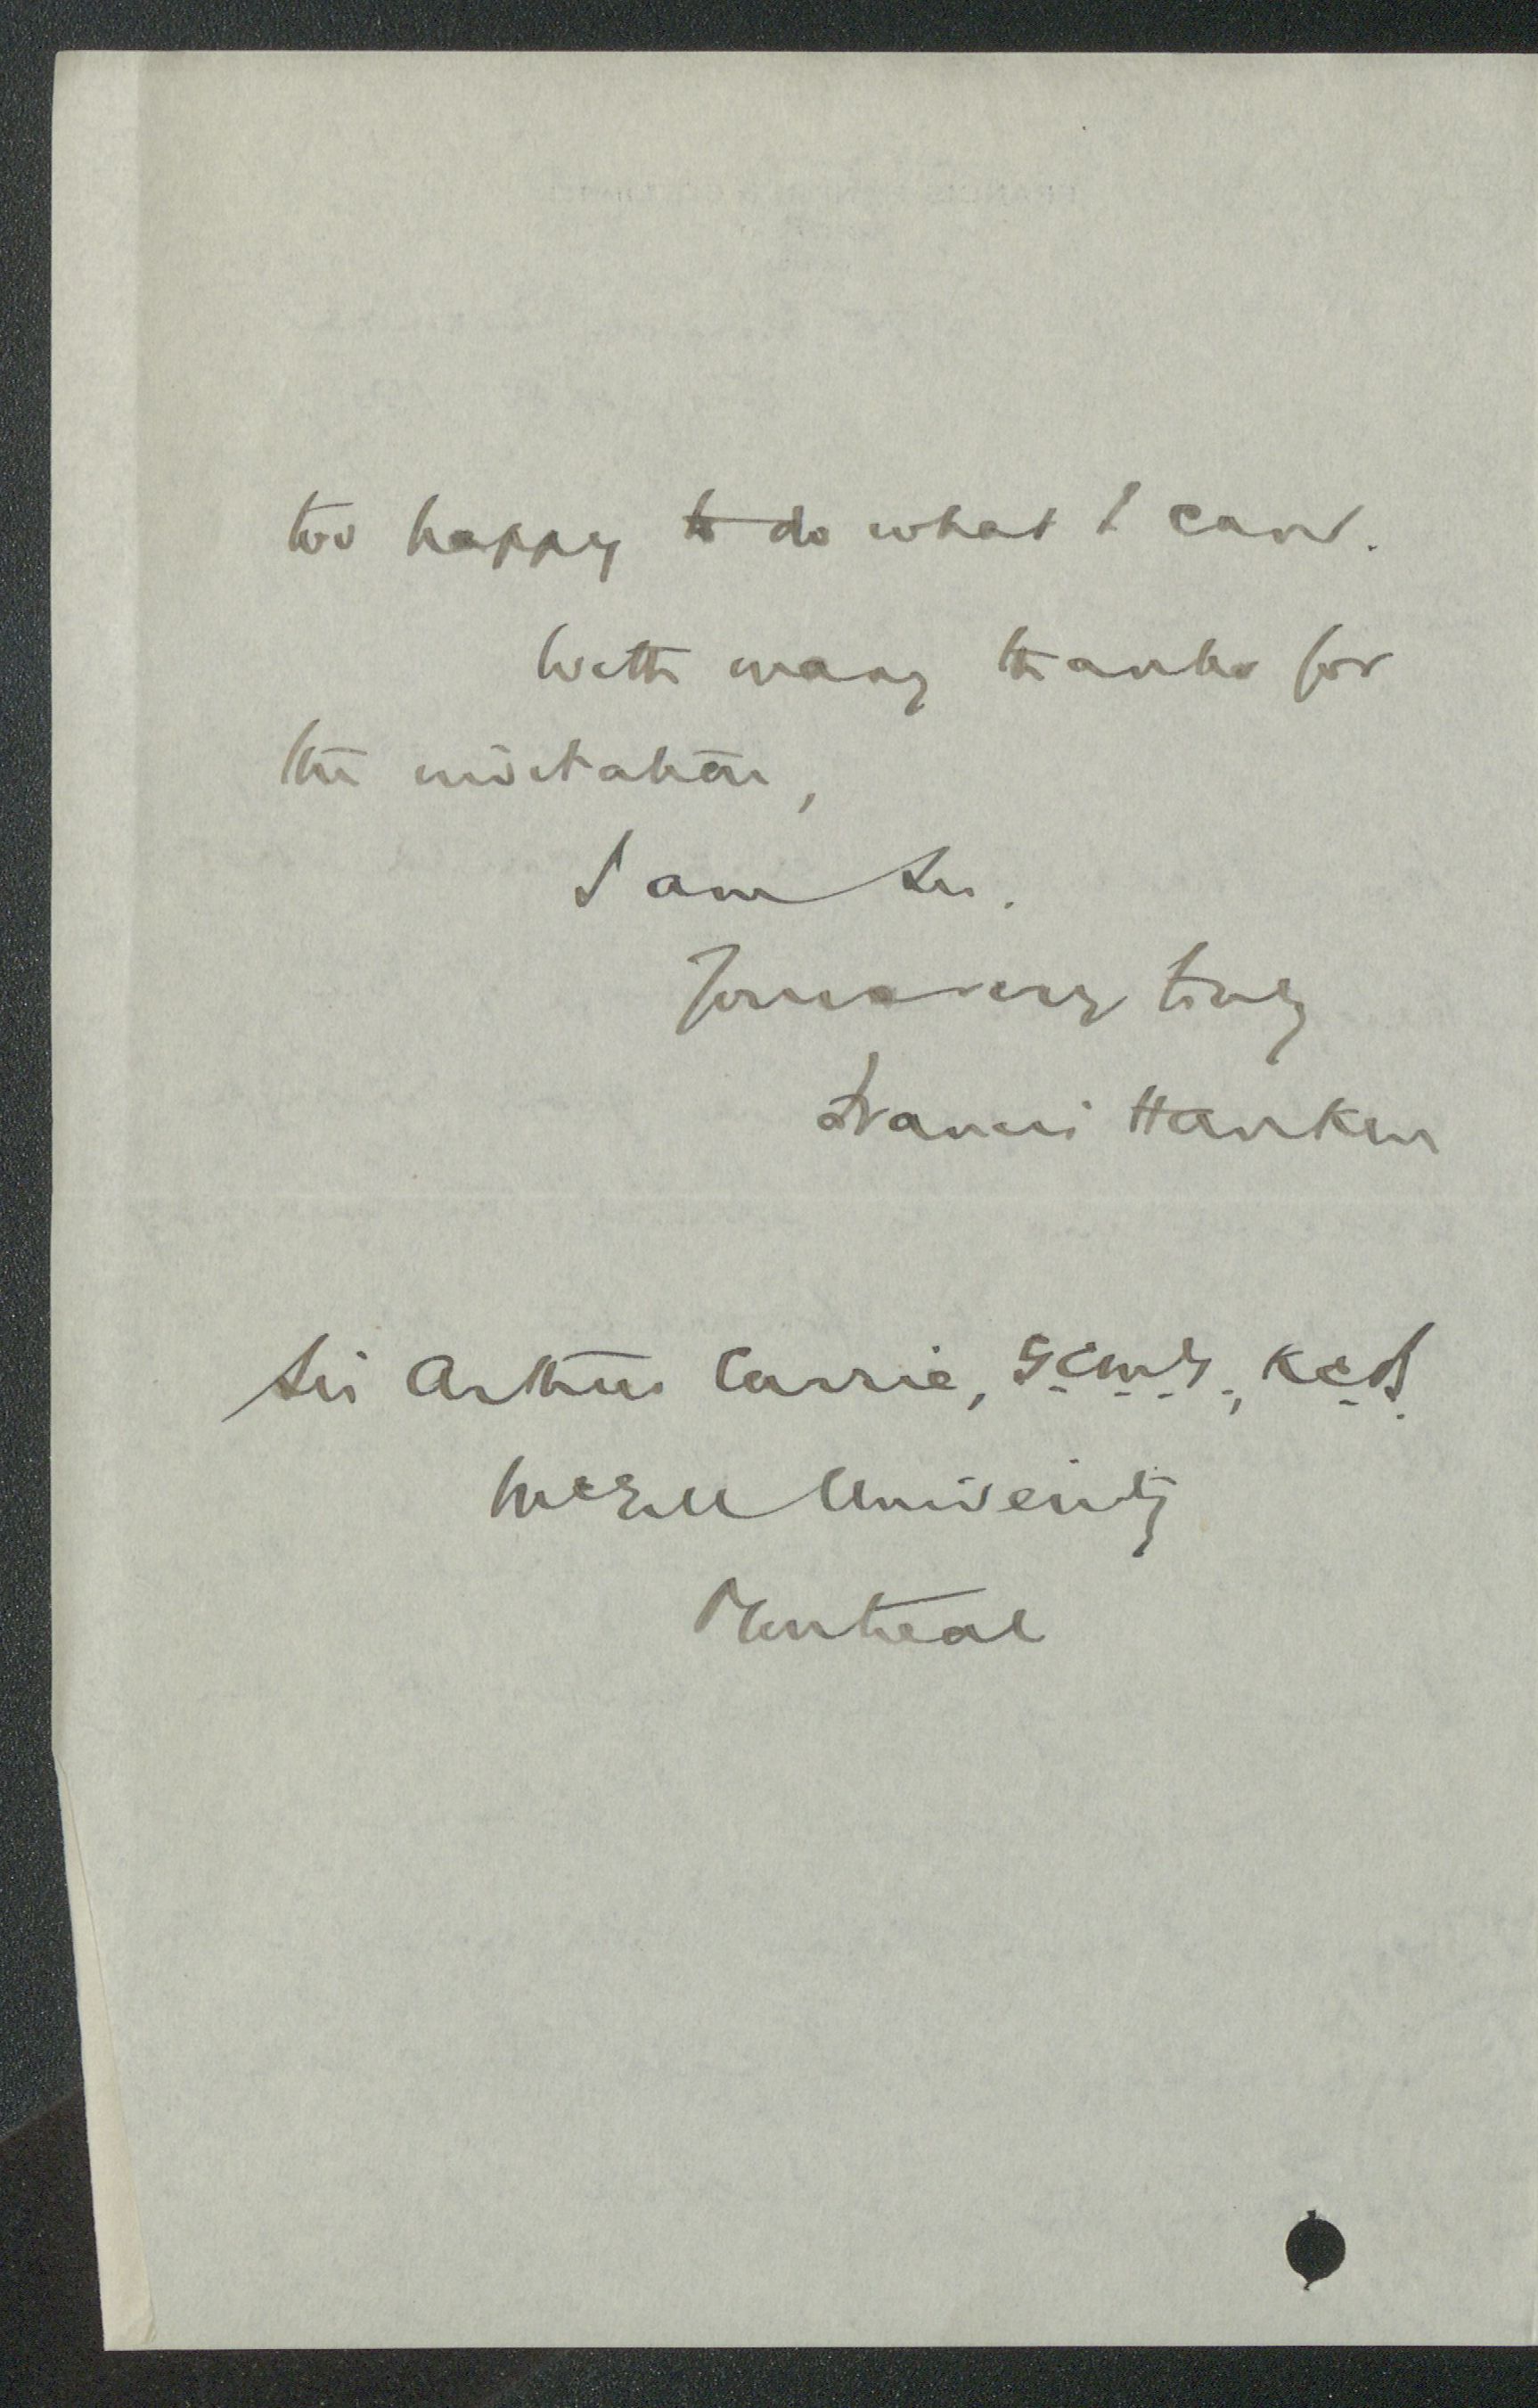 too happy to do what I can.
With many thanks for
the invitation,
I am Sir.
Yours very truly
Francis Hankin
Sir Arthur Currie, G.C.M.G., K.C.B.
McGill University
Montreal